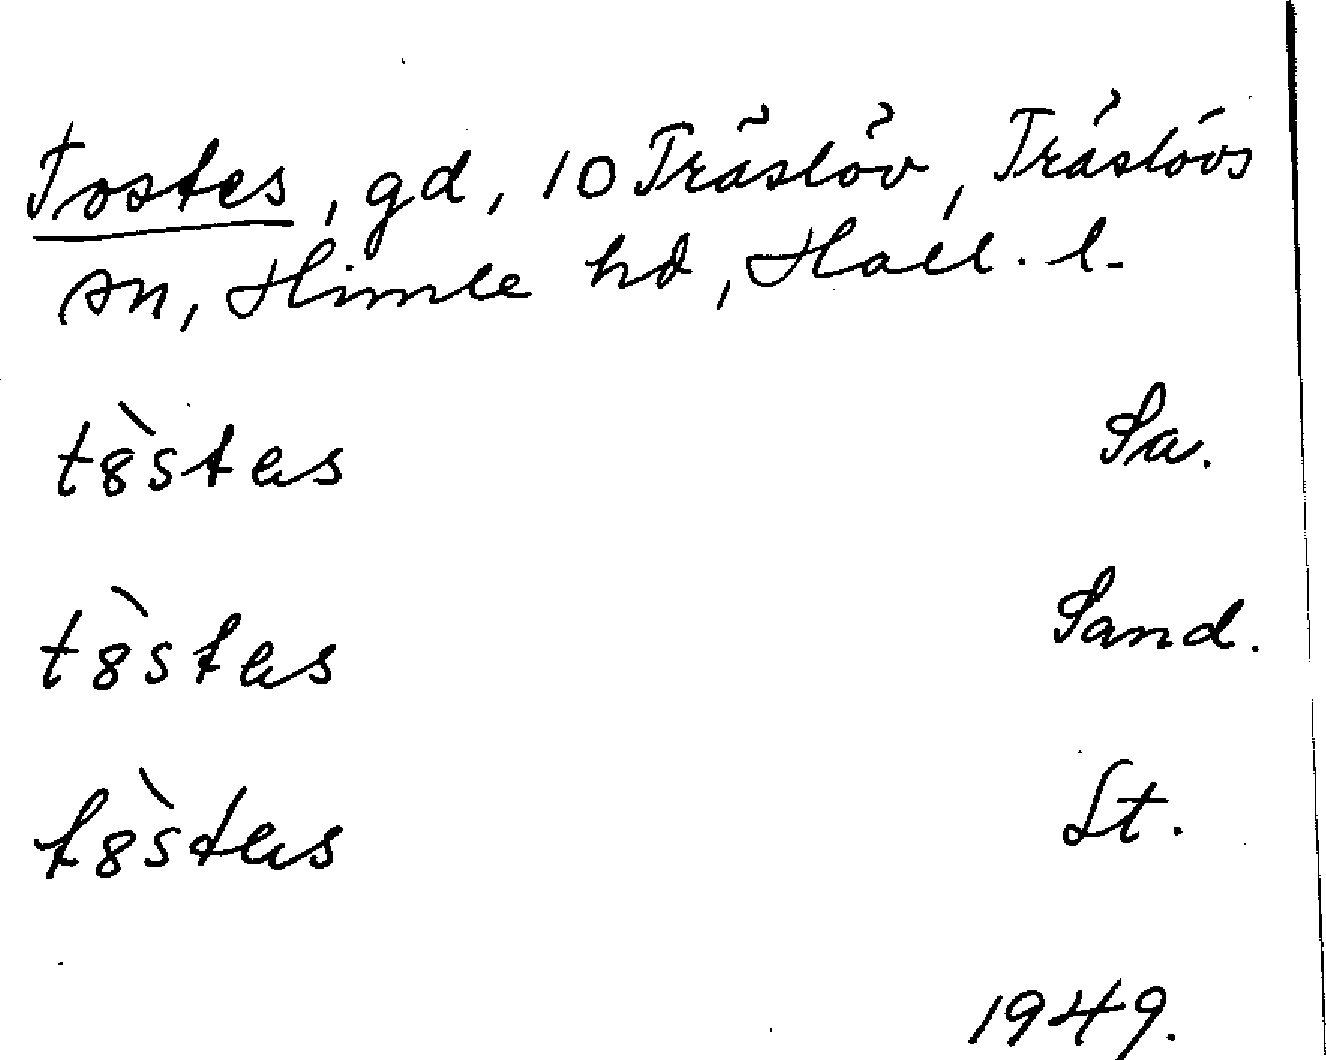 Tostes, gd, 10 Träslöv, Träslövs
sn, Himle hd, Hall. l.
t8̀stas Sa.
t8̀stas Sand.
t8̀stas St.
1949.